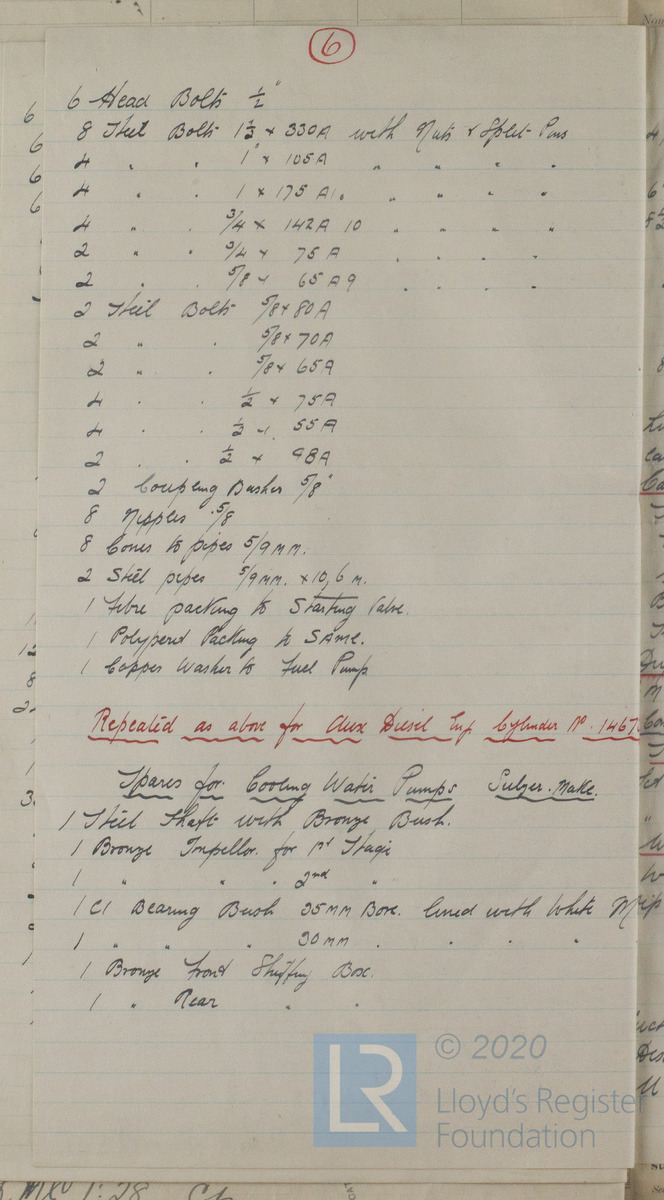 6
6 Head Bolts ½"
8 Steel Bolts 1½ × 330A with Nuts & Split Pins
4 " " 1" × 105A " " " "
4 " " 1 × 175 A1. " " " "
4 " " 3/4 × 142A 10 " " " "
2 " " 3/4 × 75 A " " " "
2 " " 5/8 × 65 A 9 " " " "
2 Steel Bolts 5/8 × 80A
2 " " 5/8 × 70A
2 " " 5/8 × 65A
4 " " ½ × 75A
4 " " ½ × 55A
2 " " ½ × 98A
2 Coupling Busher 5/8"
8 Nipples 5/8
8 Cones to pipes 5/9 mm.
2 Steel pipes 5/9 mm. × 10,6 m.
1 Fibre packing to Starting Valve.
1 Packing to SAME.
1 Copper Washer to Fuel Pump
Repeated as above for Aux Diesel Cylinder No. 1467
Spares for Cooling Water Pumps Sulzer. Make.
1 Steel Shaft with Bronze Bush.
1 Bronze Impellor. for 1st Stage
1 " " " 2nd "
1 CI Bearing Bush 35mm Bore. lined with White
1 " " " 30mm " " " "
1 Bronze Front Stuffing Box.
1 " Rear " "
© 2020
LR
Lloyd's Register
Foundation